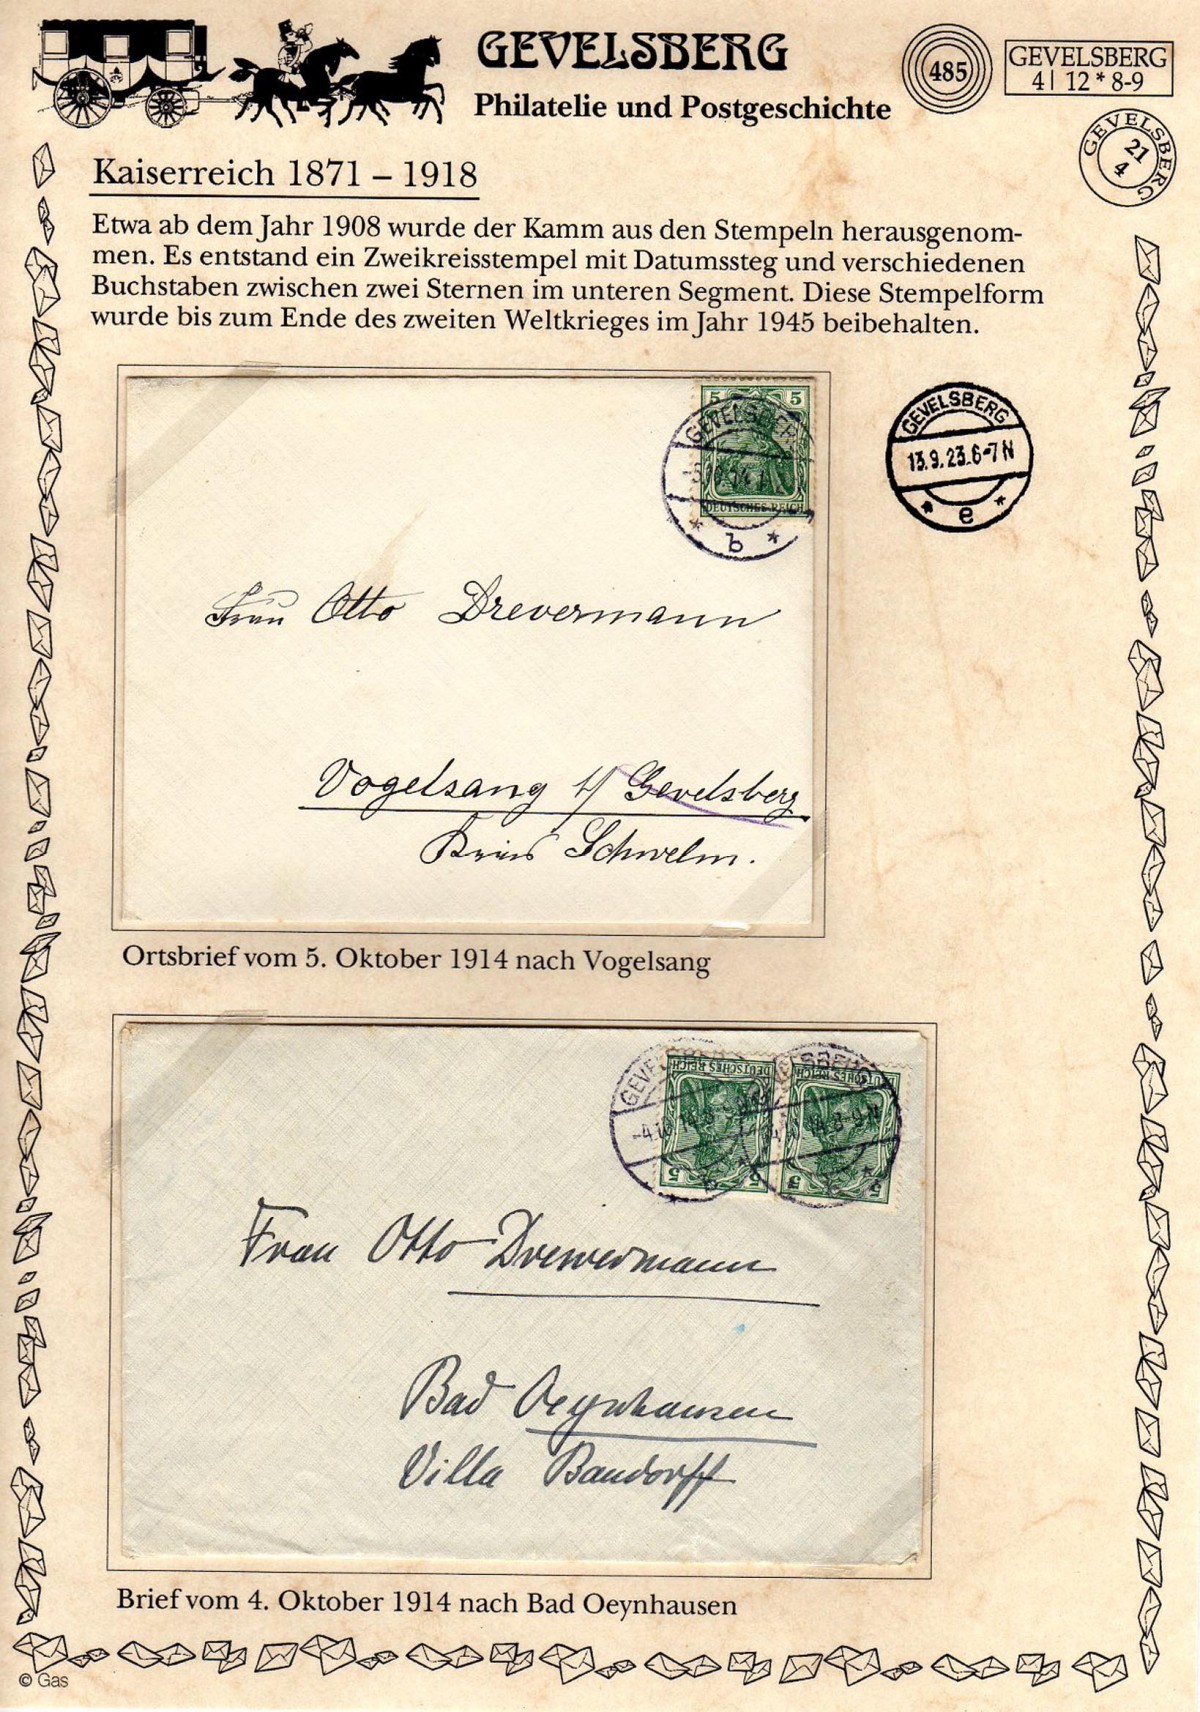 GEVELSBERG
Philatelie und Postgeschichte
485
GEVELSBERG
4| 12 * 8-9
GEVELSBERG
21
4
Kaiserreich 1871 – 1918
Etwa ab dem Jahr 1908 wurde der Kamm aus den Stempeln herausgenom-
men. Es entstand ein Zweikreisstempel mit Datumssteg und verschiedenen
Buchstaben zwischen zwei Sternen im unteren Segment. Diese Stempelform
wurde bis zum Ende des zweiten Weltkrieges im Jahr 1945 beibehalten.
5 5
DEUTSCHES REICH
GEVELSBERG
* b *
GEVELSBERG
13.9.23.6-7 N
* e *
Frau Otto Drevermann
Vogelsang b/ Gevelsberg
Kreis Schwelm.
Ortsbrief vom 5. Oktober 1914 nach Vogelsang
DEUTSCHES REICH
5 5
Frau Otto Drevermann
Bad Oeynhausen
Villa Bandorff
Brief vom 4. Oktober 1914 nach Bad Oeynhausen
© Gas